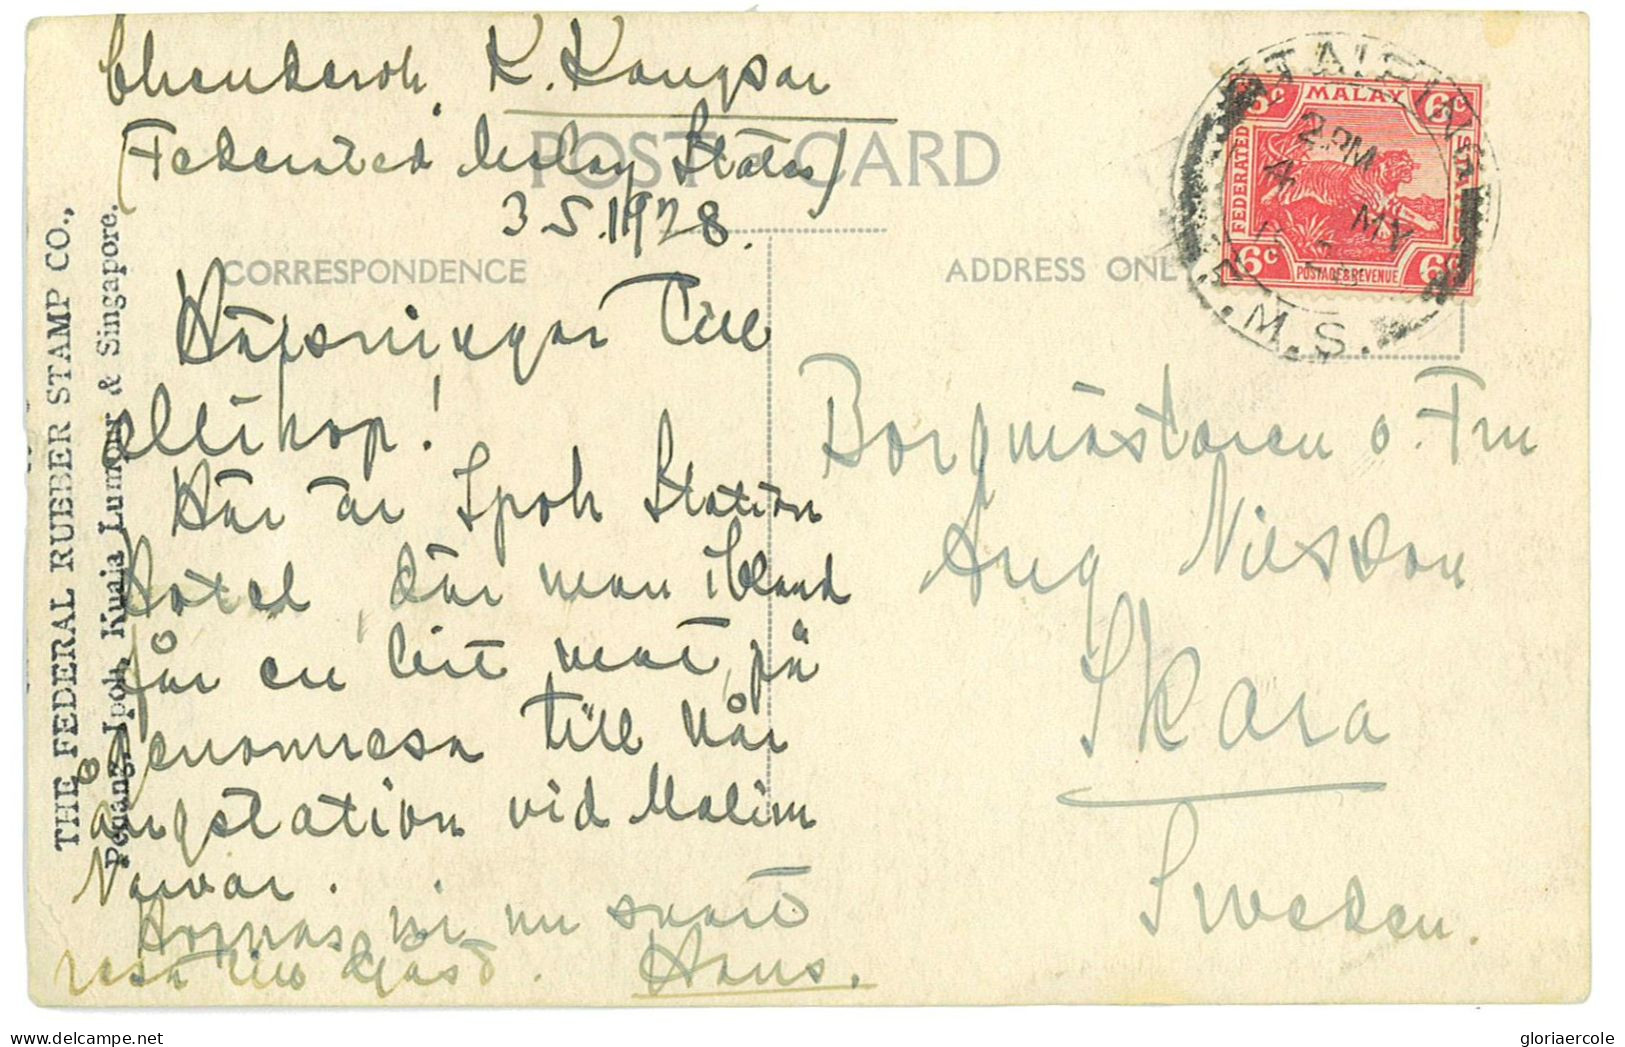 Chenderoh, K. Kangsar
(Federated Malay States)
3 5. 1928.
POST CARD
CORRESPONDENCE
ADDRESS ONLY
Hälsningar till
allihop!
Här är Ipoh Station
Hotel, där man ibland
får en bit mat på
genomresa till vår
ångstation vid Malim
Nawar.
Hoppas ni nu snart
resa till
Hans.
Borgmästaren o. Fru
Aug Nilsson
Skara
Sweden.
THE FEDERAL RUBBER STAMP CO.,
Penang, Ipoh, Kuala Lumpur & Singapore.
TAIPING
2 PM
4 MY
F.M.S.
6c MALAY 6c
FEDERATED
STATES
6c POSTAGE & REVENUE 6c
gloriaercole